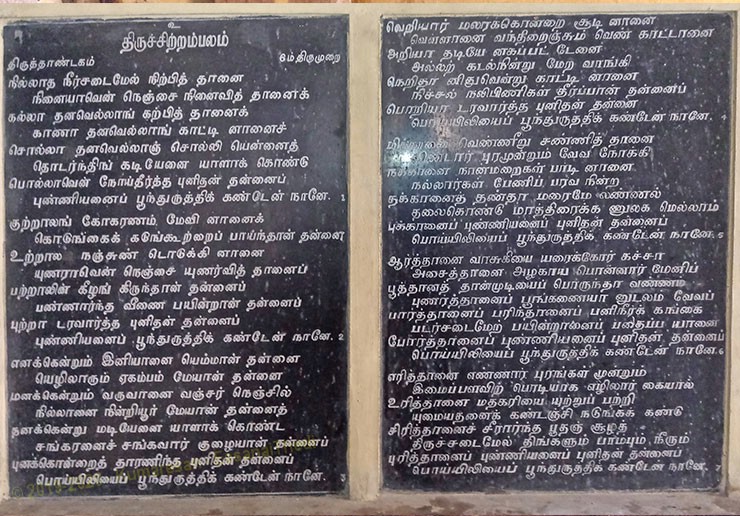 உ
திருச்சிற்றம்பலம்
திருத்தாண்டகம் 6ம்திருமுறை
நில்லாத நீர்சடைமேல் நிற்பித் தானை
நினையாவென் நெஞ்சை நினைவித் தானைக்
கல்லா தனவெல்லாங் கற்பித் தானைக்
காணா தனவெல்லாங் காட்டி னானைச்
சொல்லா தனவெல்லாஞ் சொல்லி யென்னைத்
தொடர்ந்திங் கடியேனை யாளாக் கொண்டு
பொல்லாவென் நோய்தீர்த்த புனிதன் தன்னைப்
புண்ணியனைப் பூந்துருத்திக் கண்டேன் நானே. 1
குற்றாலங் கோகரணம் மேவி னானைக்
கொடுங்கைக் கடுங்கூற்றைப் பாய்ந்தான் தன்னை
உற்றால நஞ்சுண் டொடுக்கி னானை
யுணராவென் நெஞ்சை யுணர்வித் தானைப்
பற்றாலின் கீழங் கிருந்தான் தன்னைப்
பண்ணார்ந்த வீணை பயின்றான் தன்னைப்
புற்றா டரவார்த்த புனிதன் தன்னைப்
புண்ணியனைப் பூந்துருத்திக் கண்டேன் நானே. 2
எனக்கென்றும் இனியானை யெம்மான் தன்னை
யெழிலாரும் ஏகம்பம் மேயான் தன்னை
மனக்கென்றும் வருவானை வஞ்சர் நெஞ்சில்
நில்லானை நின்றியூர் மேயான் தன்னைத்
தனக்கென்று மடியேனை யாளாக் கொண்ட
சங்கரனைச் சங்கவார் குழையான் தன்னைப்
புனக்கொன்றைத் தாரணிந்த புனிதன் தன்னைப்
பொய்யிலியைப் பூந்துருத்திக் கண்டேன் நானே. 3
வெறியார் மலர்க்கொன்றை சூடி னானை
வெள்ளானை வந்திறைஞ்சும் வெண் காட்டானை
அறியா தடியே னகப்பட் டேனை
அல்லற் கடல்நின்று மேற வாங்கி
நெறிதா னிதுவென்று காட்டி னானை
நிச்சல் நலிபிணிகள் தீர்ப்பான் தன்னைப்
பொறியா டரவார்த்த புனிதன் தன்னை
பொய்யிலியைப் பூந்துருத்திக் கண்டேன் நானே. 4
வெண்ணீறு சண்ணித் தானை
புரமூன்றும் வேவ நோக்கி
நக்கானை நான்மறைகள் பாடி னானை
நல்லார்கள் பேணிப் பரவ நின்ற
தக்கானைத் தண்தா மரைமே லண்ணல்
தலைகொண்டு மாத்திரைக்க ணுலக மெல்லாம்
புக்கானைப் புண்ணியனைப் புனிதன் தன்னைப்
பொய்யிலியைப் பூந்துருத்திக் கண்டேன் நானே. 5
ஆர்த்தானை வாசுகியை யரைக்கோர் கச்சா
அசைத்தானை அழகாய பொன்னார் மேனிப்
பூத்தானத் தான்முடியைப் பொருந்தா வண்ணம்
புணர்த்தானைப் பூங்கணையா னுடலம் வேவப்
பார்த்தானைப் பரிந்தானைப் பனிநீர்க் கங்கை
படர்சடைமேற் பயின்றானைப் பதைப்ப யானை
போர்த்தானைப் புண்ணியனைப் புனிதன் தன்னைப்
பொய்யிலியைப் பூந்துருத்திக் கண்டேன் நானே. 6
எரித்தானை எண்ணார் புரங்கள் மூன்றும்
இமைப்பளவிற் பொடியாக எழிலார் கையால்
உரித்தானை மதகரியை யுற்றுப் பற்றி
யுமையதனைக் கண்டஞ்சி நடுங்கக் கண்டு
சிரித்தானைச் சீரார்ந்த பூதஞ் சூழத்
திருச்சடைமேல் திங்களும் பாம்பும் நீரும்
புரித்தானைப் புண்ணியனைப் புனிதன் தன்னைப்
பொய்யிலியைப் பூந்துருத்திக் கண்டேன் நானே. 7